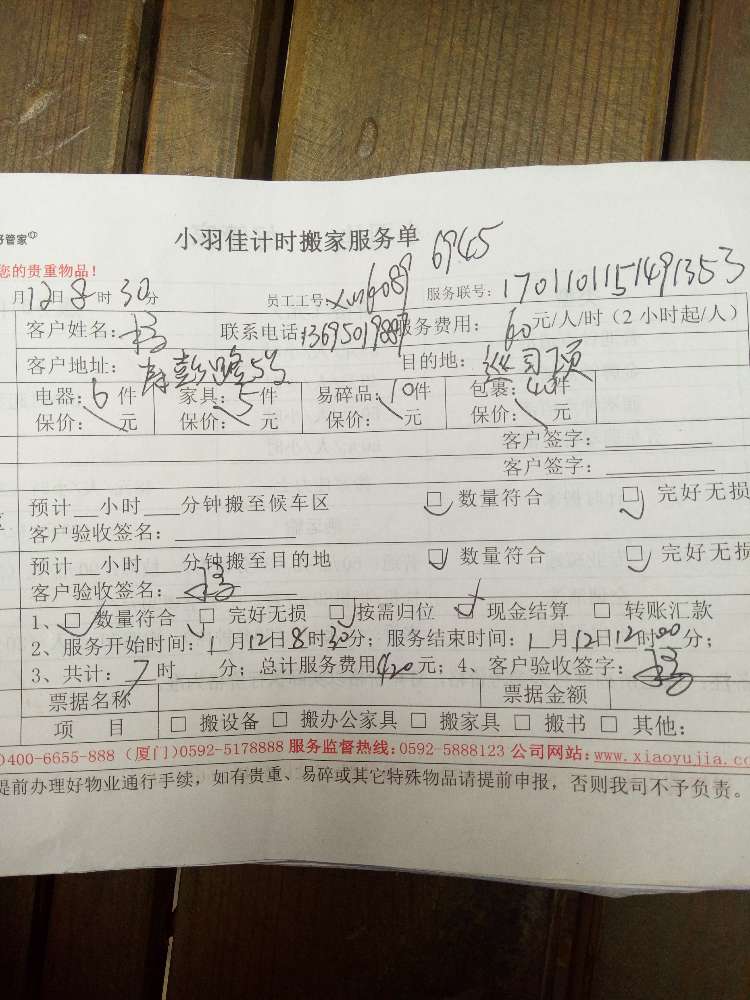 好管家
小羽佳计时搬家服务单 6945
您的贵重物品!
月12日8时30分 员工工号: 服务联号: 17011011151491353
客户姓名: 联系电话:13695019889 服务费用: 60元/人/时(2小时起/人)
客户地址: 目的地:
电器:6件 家具:5件 易碎品:10件 包裹:40件
保价: 元 保价: 元 保价: 元 保价: 元
客户签字:
客户签字:
预计 小时 分钟搬至候车区 ☑ 数量符合 ☑ 完好无损
客户验收签名:
预计 小时 分钟搬至目的地 ☑ 数量符合 ☑ 完好无损
客户验收签名:
1、☑ 数量符合 ☑ 完好无损 ☑ 按需归位 ☑ 现金结算 □ 转账汇款
2、服务开始时间:1月12日8时30分;服务结束时间:1月12日12时00分;
3、共计:7时 分;总计服务费用420元;4、客户验收签字:
票据名称 票据金额
项 目 □ 搬设备 □ 搬办公家具 □ 搬家具 □ 搬书 □ 其他:
)400-6655-888 (厦门)0592-5178888 服务监督热线:0592-5888123 公司网站:www.xiaoyujia.co
提前办理好物业通行手续,如有贵重、易碎或其它特殊物品请提前申报,否则我司不予负责。